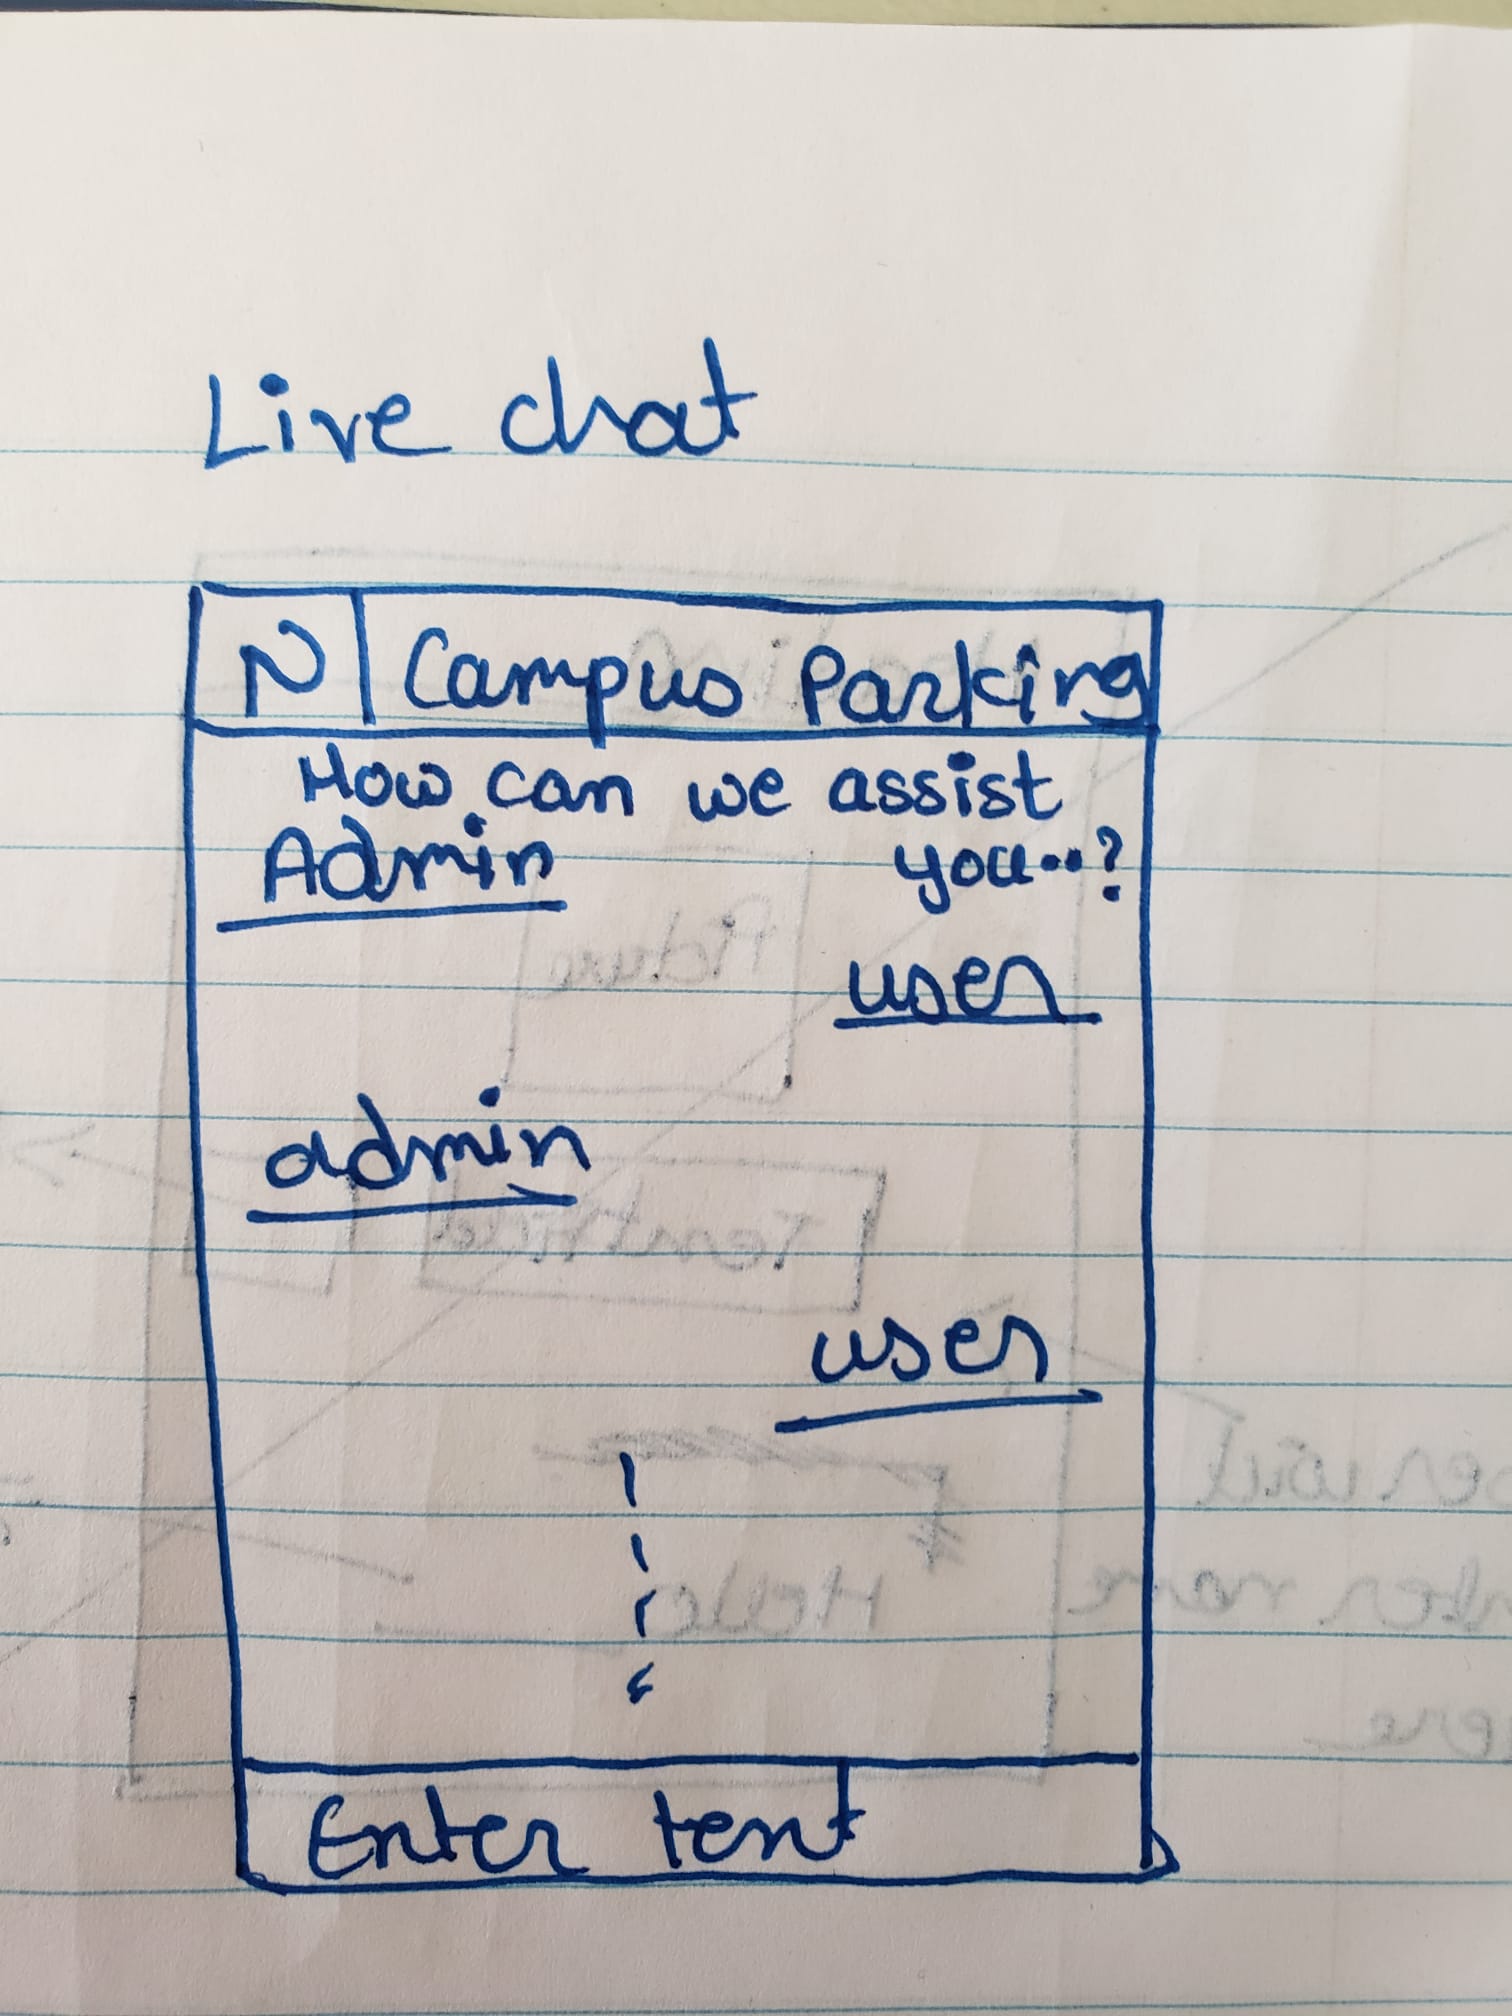 Live chat
N Campus Parking
How can we assist
Admin you..?
user
admin
user
Enter text